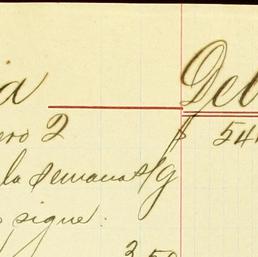 ia Deb
ero 2 $ 54
la semana s/g
sigue.
3 50